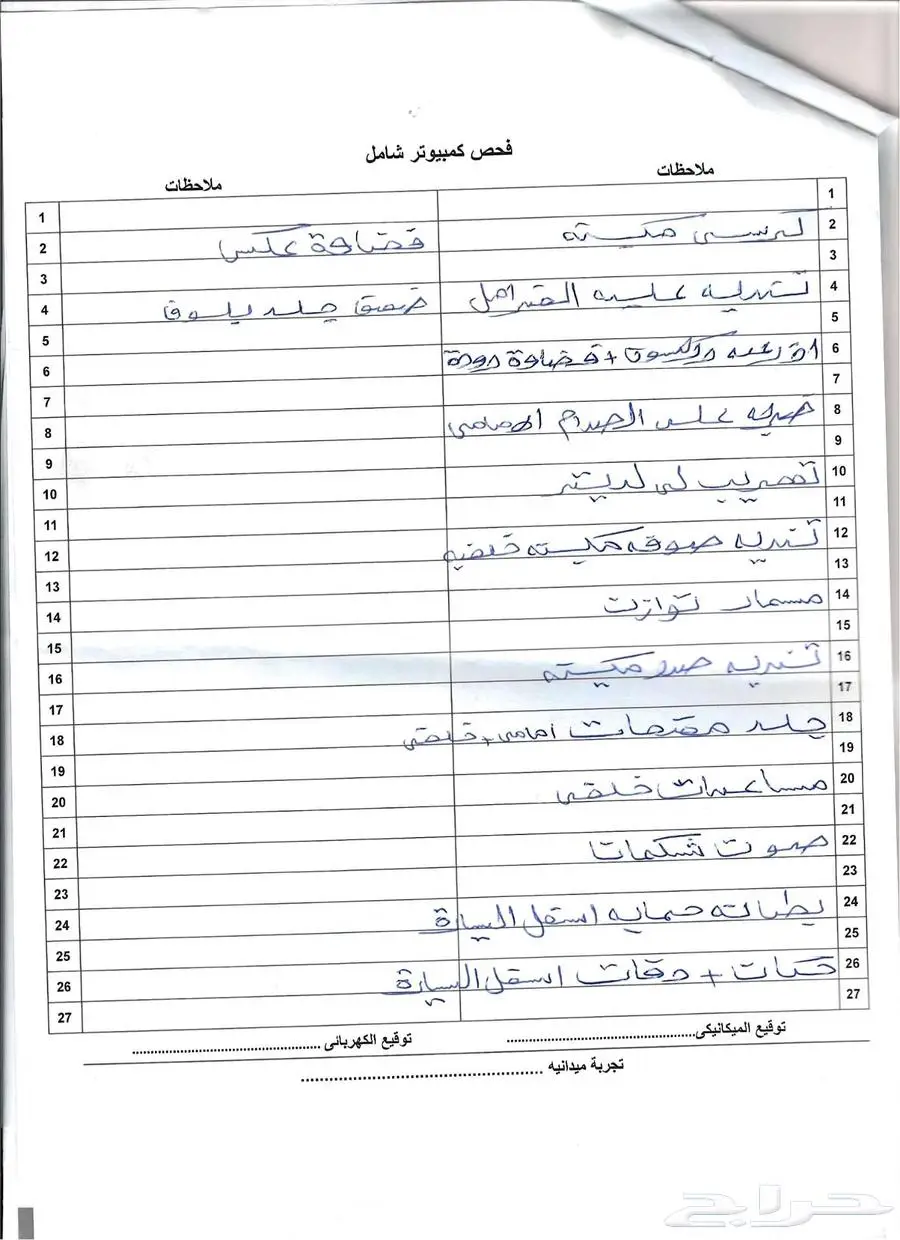 فحص كمبيوتر شامل
ملاحظات
ملاحظات
1
1
2 كرسي مكينه
2 فضاوة عكس
3
3
4 تندية علبه القير اصل
4 ضعيق جلد بلوف
5
5
6 + فضاوة دودة
6
7
7
8 ضربه على الصدام الامامي
8
9
9
10 تهريب لي لديتر
10
11
11
12 تنديه صوفه مكينه خلفيه
12
13
13
14 مسمار توازن
14
15
15
16 تنديه صدر مكينه
16
17
17
18 جلد مقصات امامي + خلفي
18
19
19
20 مساعدات خلفي
20
21
21
22 صوت شكمات
22
23
23
24 بطانه حمايه اسفل السيارة
24
25
25
26 حكات + دقات اسفل السيارة
26
27
27
توقيع الميكانيكى
توقيع الكهربائى
تجربة ميدانيه
حراج